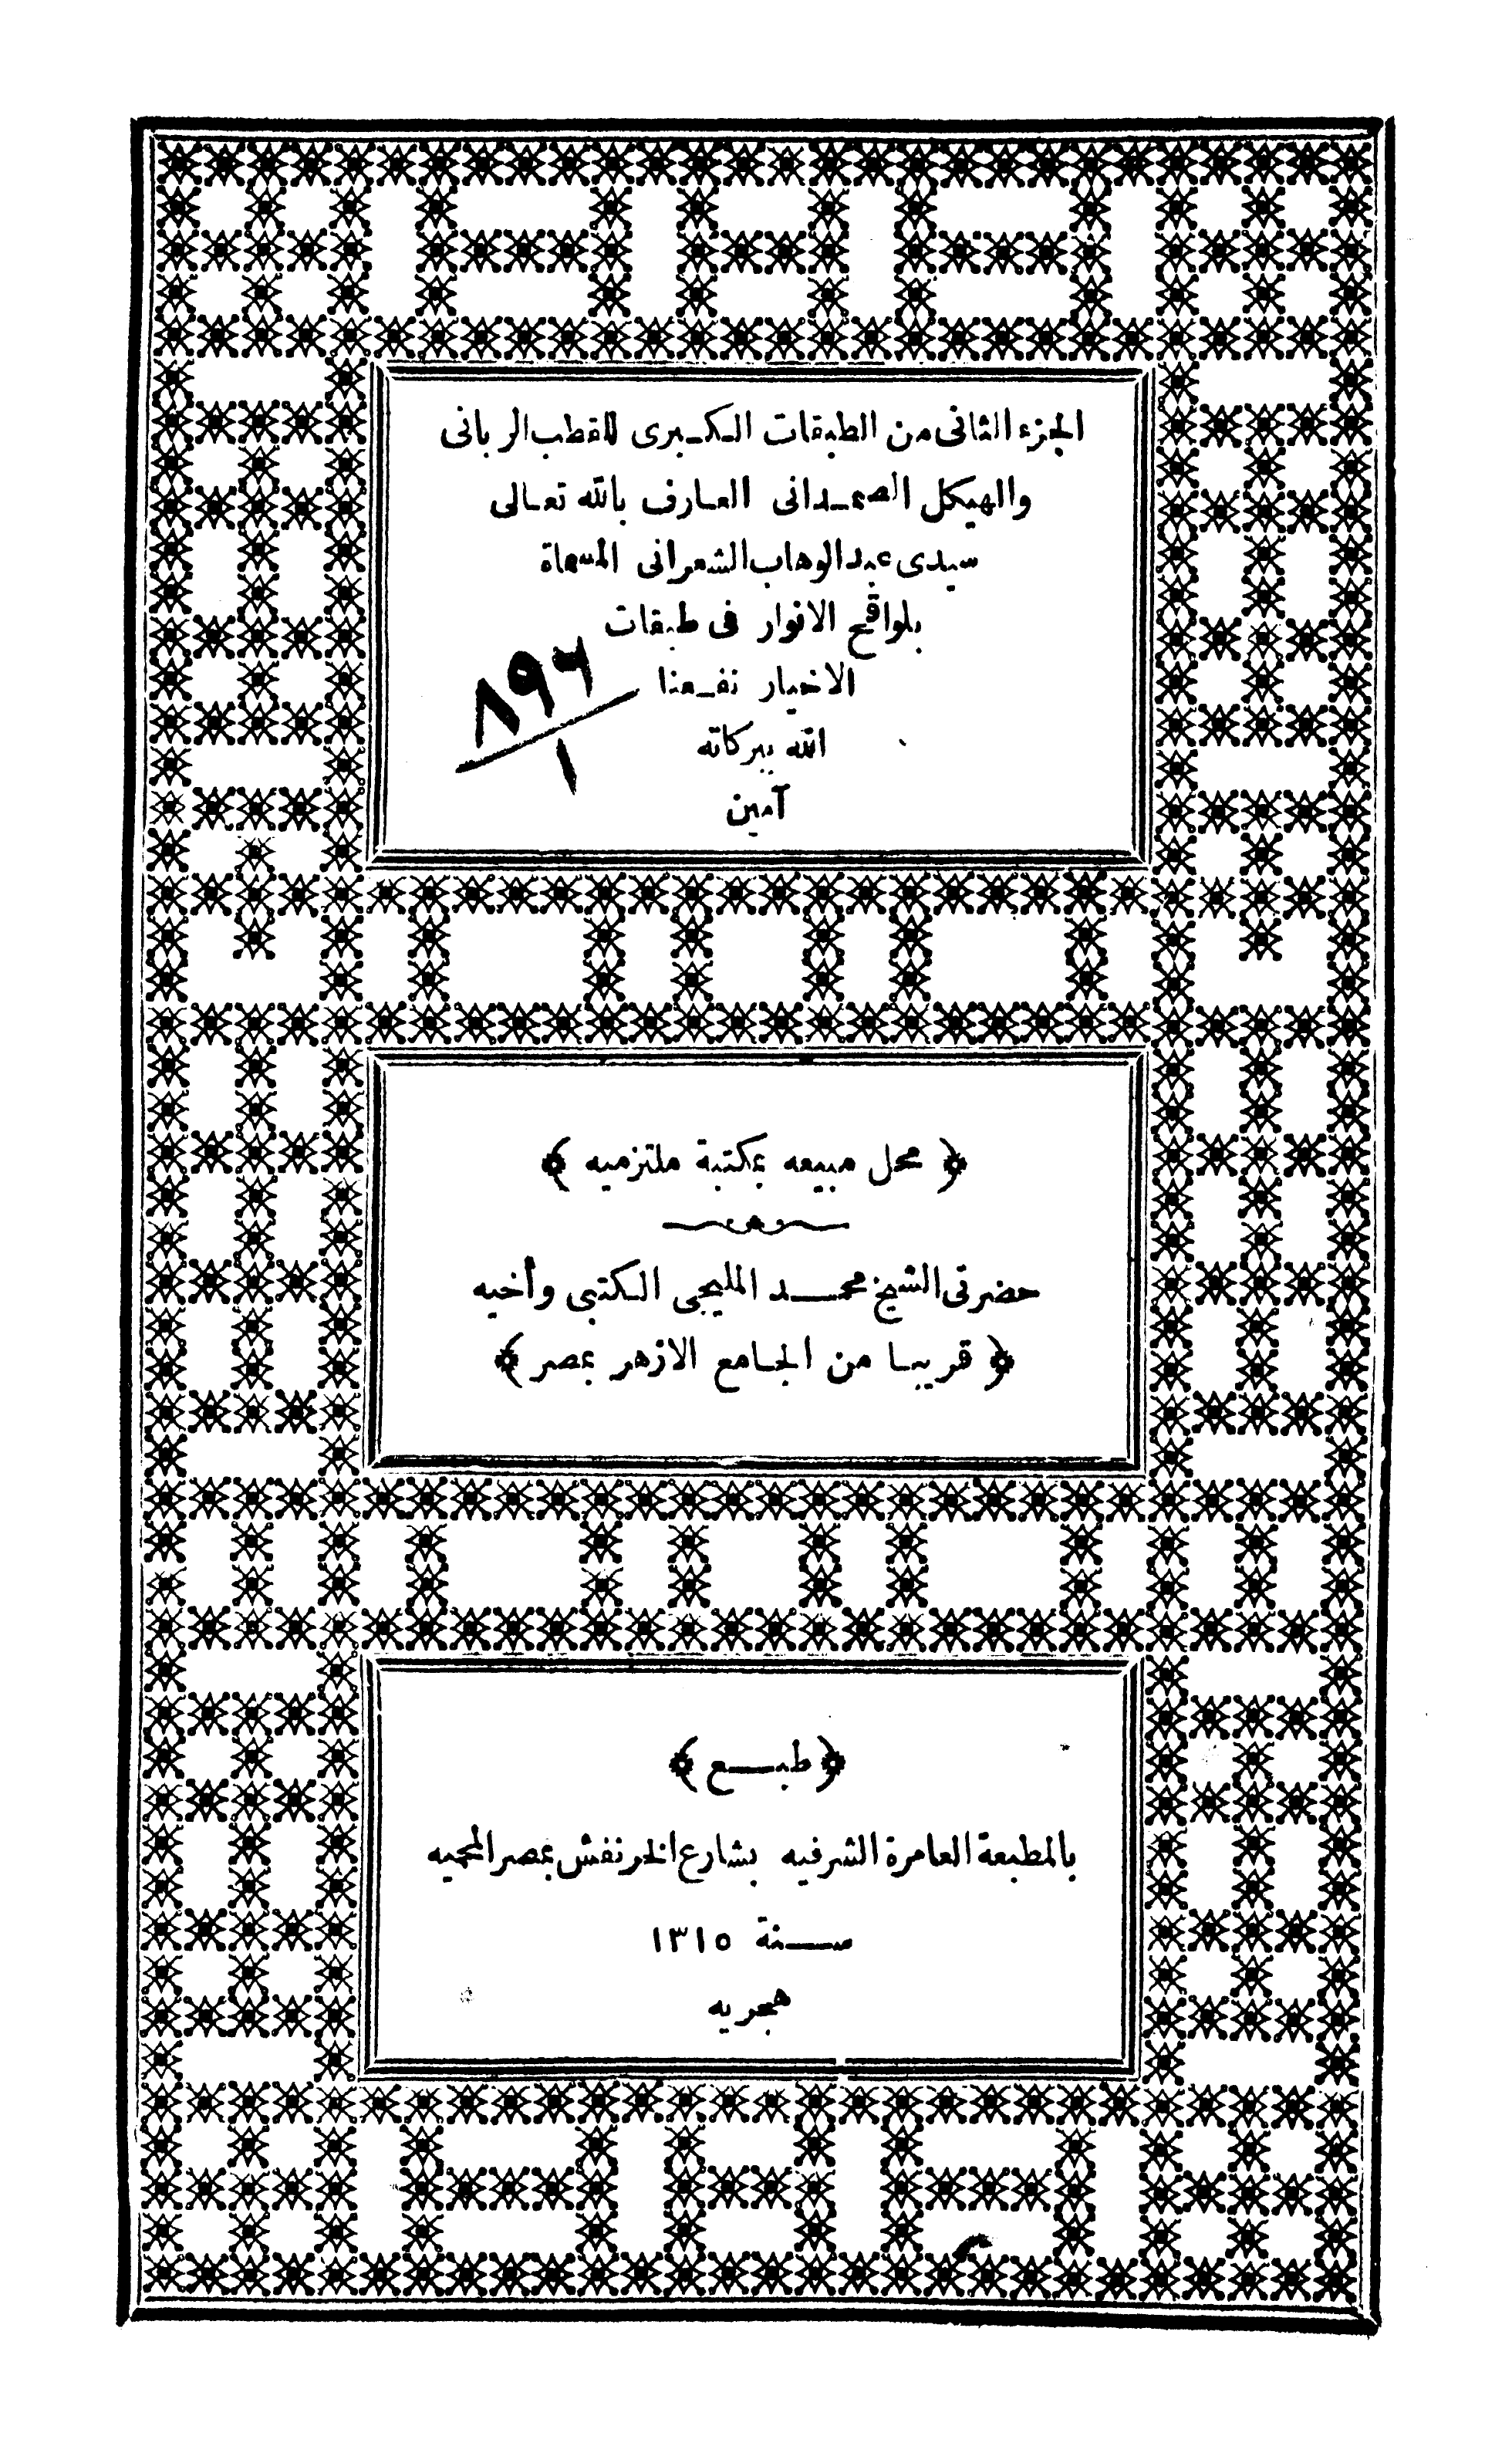 الجزء الثانى من الطبقات الكبرى للقطب الربانى
والهيكل الصمدانى العارف بالله تعالى
سيدى عبد الوهاب الشعرانى المسماة
بلواقح الانوار فى طبقات
الاخيار نفعنا
الله ببركاته
آمين
٨٩٦
١
﴿ محل مبيعه بمكتبة ملتزميه ﴾
حضرتى الشيخ محمد المليجى الكتبى وأخيه
﴿ قريبا من الجامع الازهر بمصر ﴾
﴿ طبع ﴾
بالمطبعة العامرة الشرفيه بشارع الخرنفش بمصر المحميه
سنة ١٣١٥
هجريه